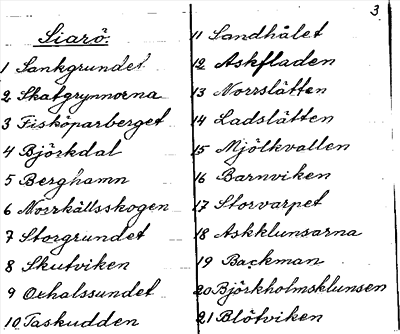 3.
Siarö.
1 Sankgrundet
2 Skatgrynnorna
3 Fisköparberget
4 Björkdal
5 Berghamn
6 Norrkällsskogen
7 Storgrundet
8 Skutviken
9 Oxhalssundet
10 Taskudden
11 Sandhålet
12 Askfladen
13 Norrslätten
14 Ladslätten
15 Mjölkvallen
16 Barnviken
17 Storvarpet
18 Askklunsarna
19 Backman
20 Björkholmsklunsen
21 Blötviken